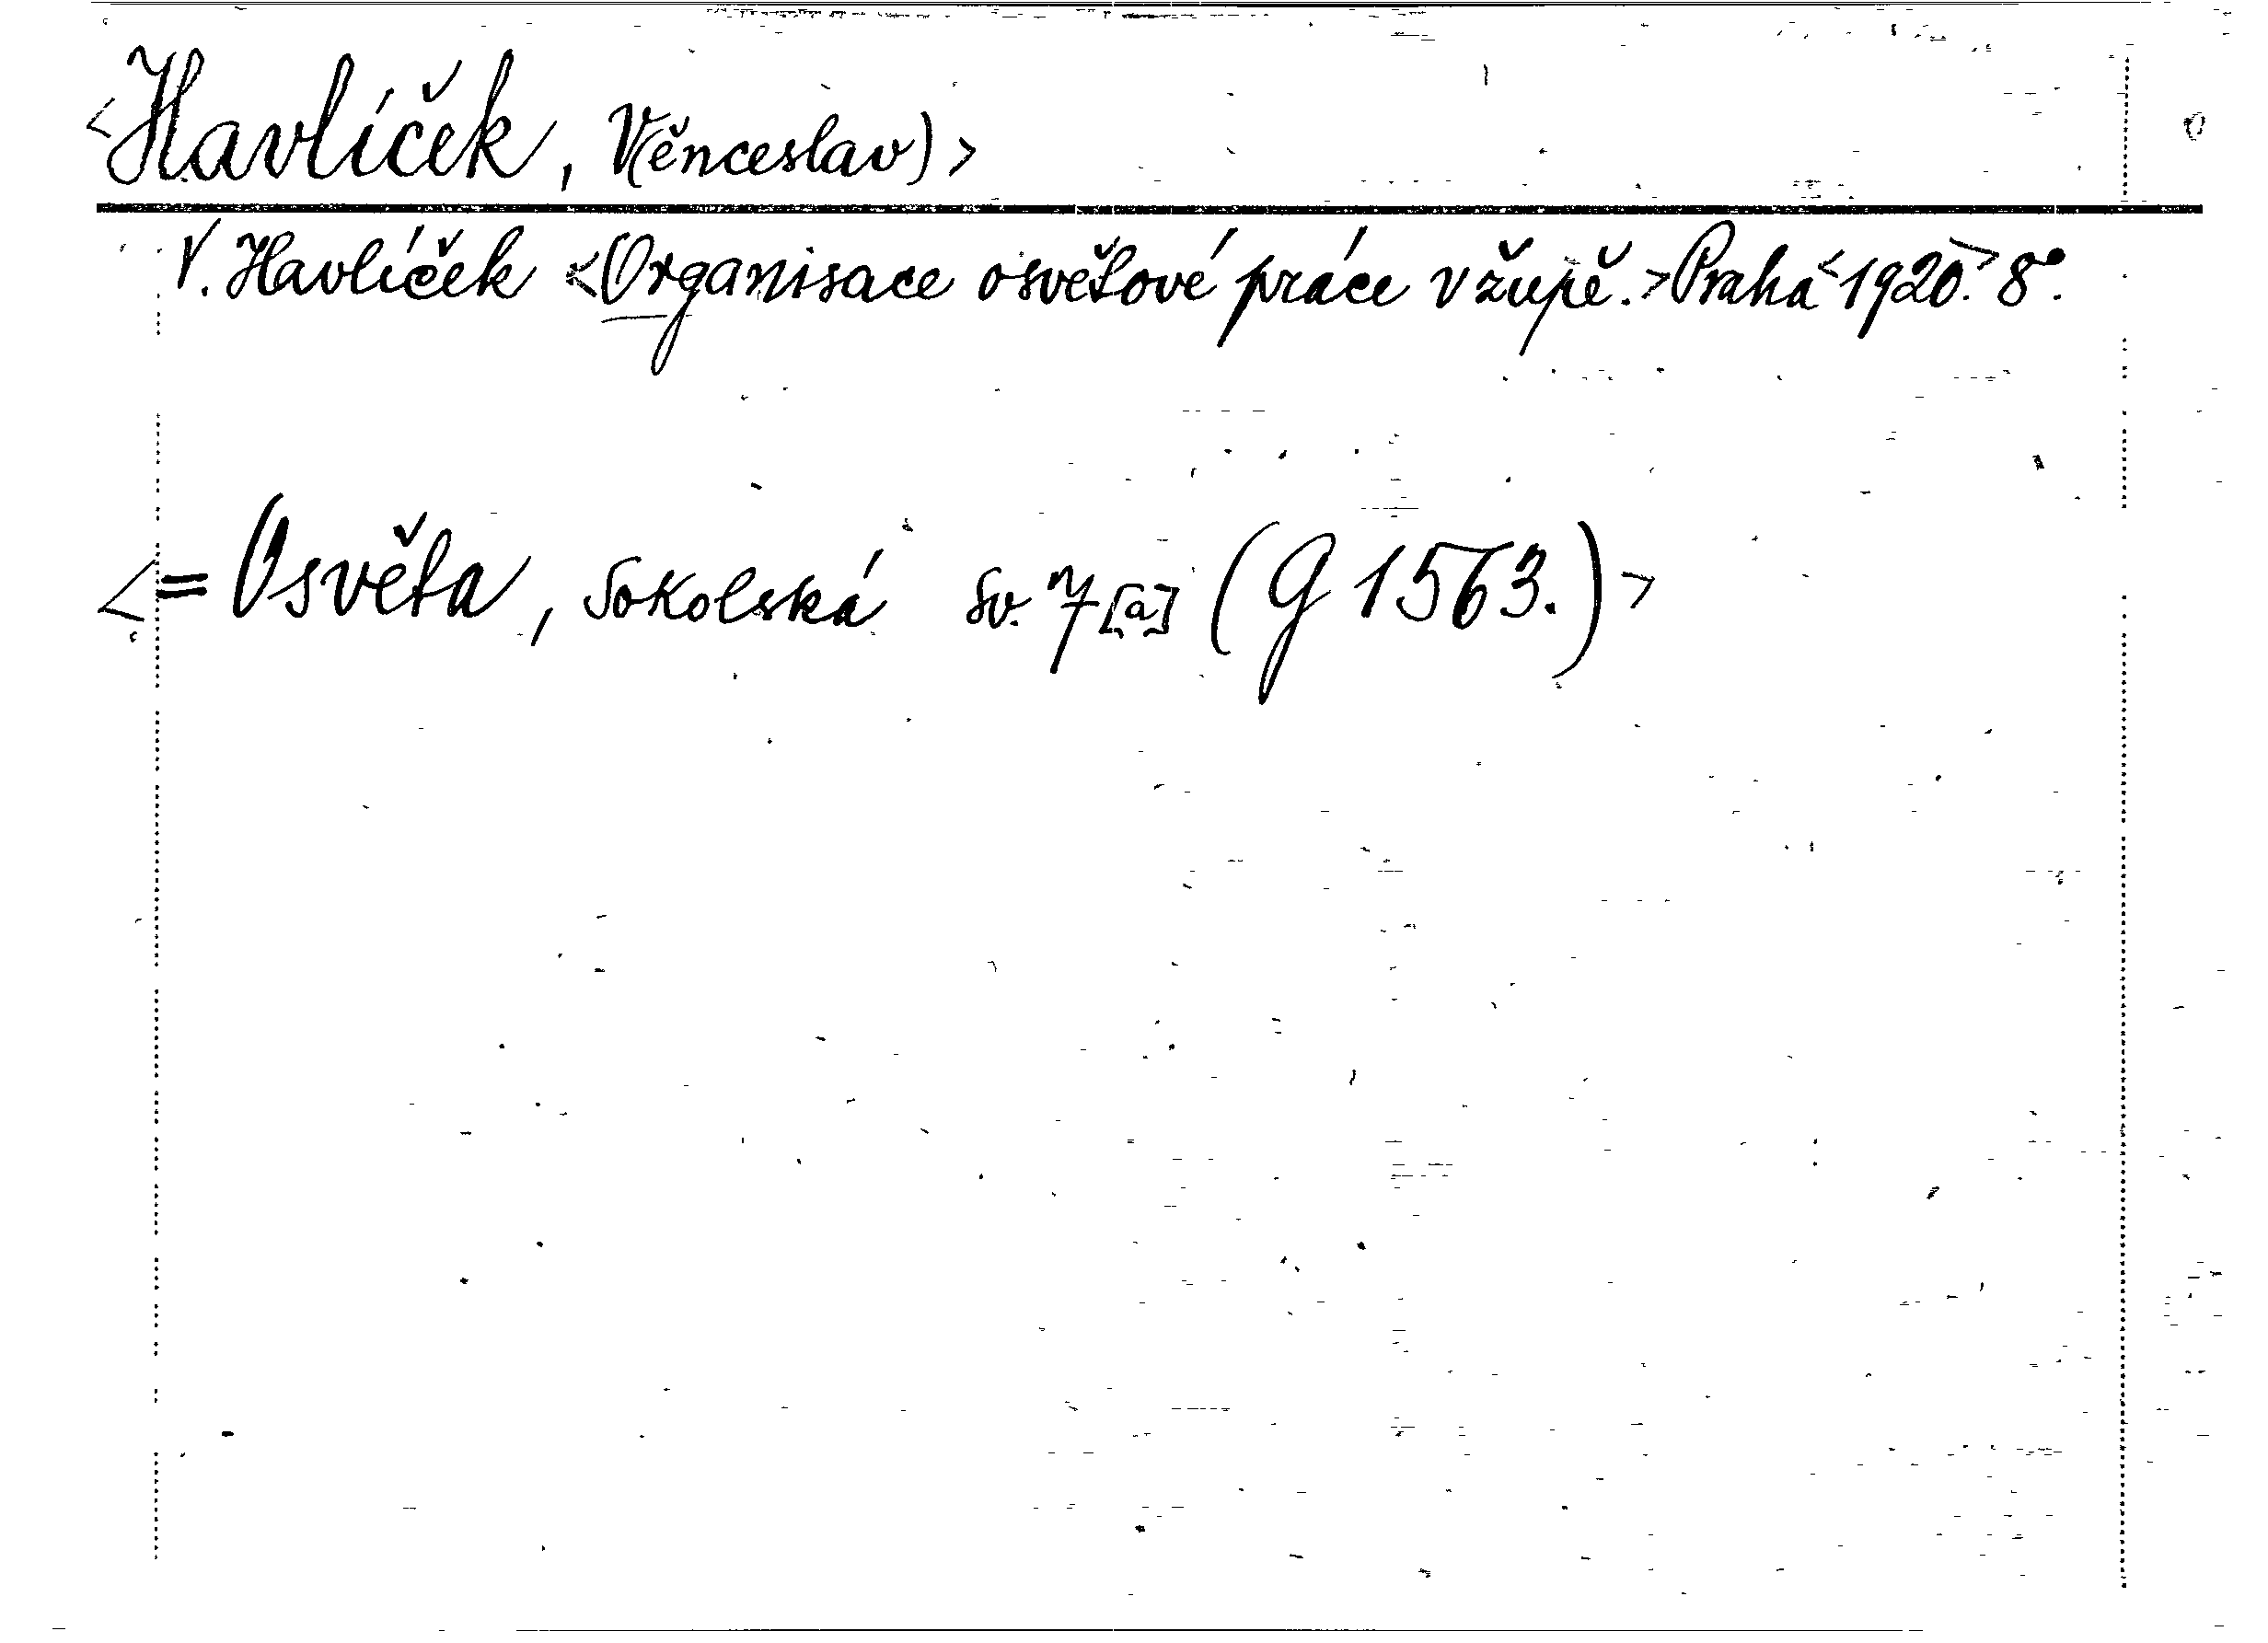 <Havlíček, V(ěnceslav)>
V. Havlíček <Organisace osvětové práce v župě.> Praha <1920.> 8°.
<= Osvěta, Sokolská sv. 7[a] (G 1563.)>